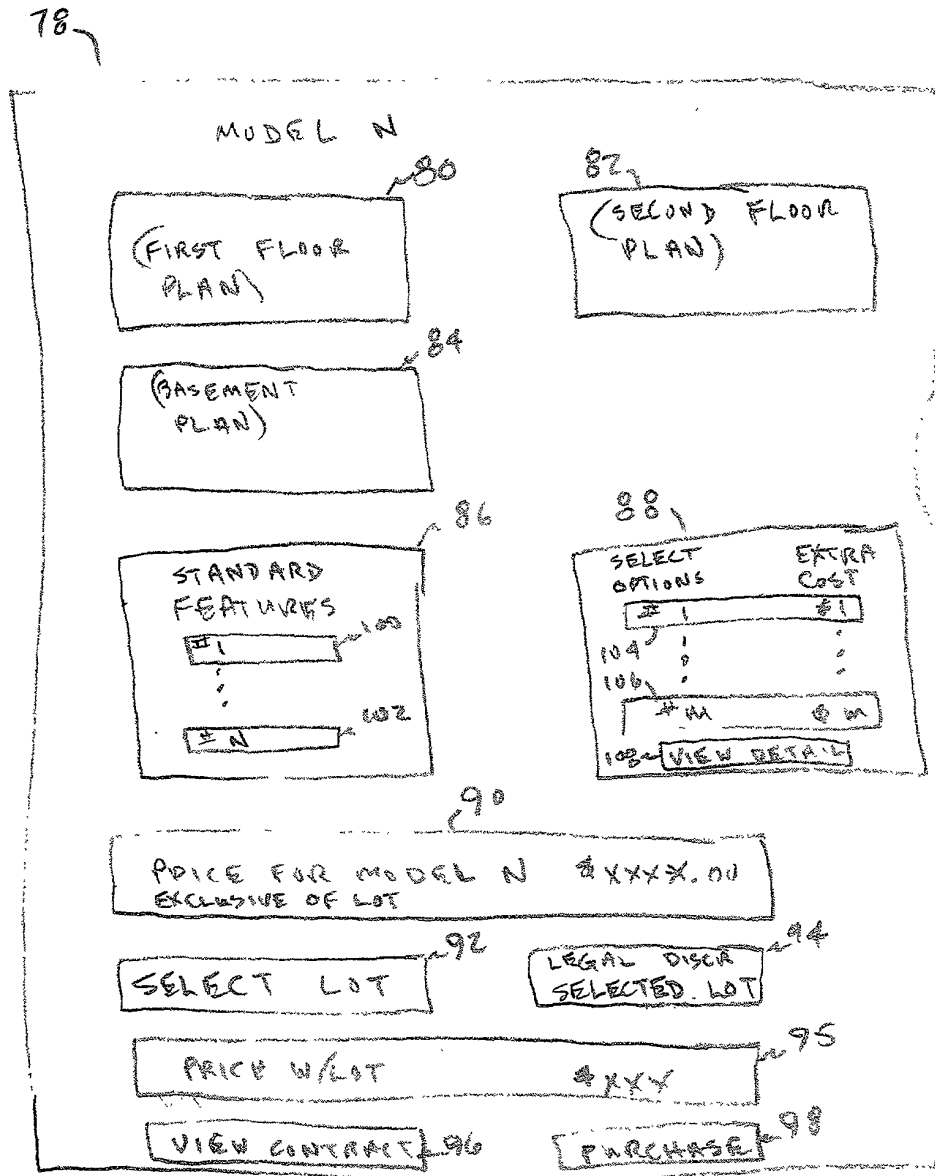 78
MODEL N
80
82
(FIRST FLOOR
PLAN)
(SECOND FLOOR
PLAN)
84
(BASEMENT
PLAN)
86
88
STANDARD
FEATURES
#1
100
#N
102
SELECT
OPTIONS
EXTRA
COST
#1 $1
104
106
#M $M
108
VIEW DETAIL
90
PRICE FOR MODEL N $XXXX.00
EXCLUSIVE OF LOT
92
94
SELECT LOT
LEGAL DISCR
SELECTED LOT
95
PRICE W/LOT $XXX
VIEW CONTRACT
96
PURCHASE
98